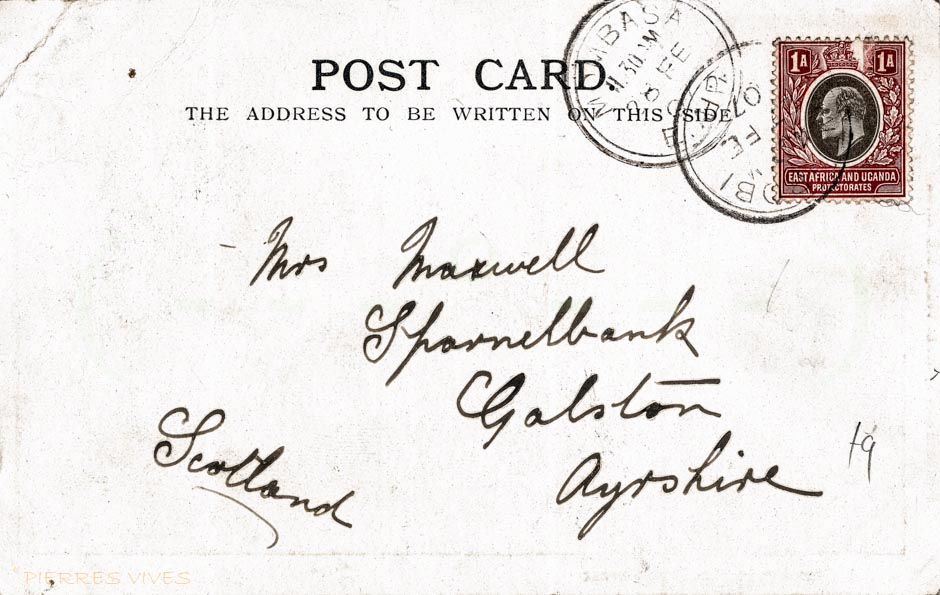 POST CARD.
THE ADDRESS TO BE WRITTEN ON THIS SIDE
MOMBASA
11.30 AM
FE
07
FE
OBI
1A 1A
EAST AFRICA AND UGANDA
PROTECTORATES
Mrs Maxwell
Sparnelbank
Galston
Ayrshire
Scotland
19
PIERRES VIVES